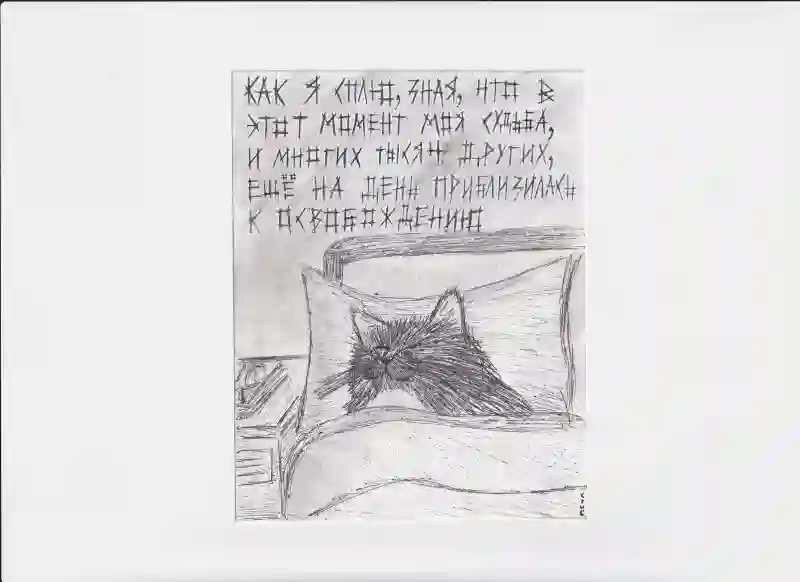 КАК Я СПЛЮ, ЗНАЯ, ЧТО В
ЭТОТ МОМЕНТ МОЯ СУДЬБА,
И МНОГИХ ТЫСЯЧ ДРУГИХ,
ЕЩЁ НА ДЕНЬ ПРИБЛИЗИЛАСЬ
К ОСВОБОЖДЕНИЮ